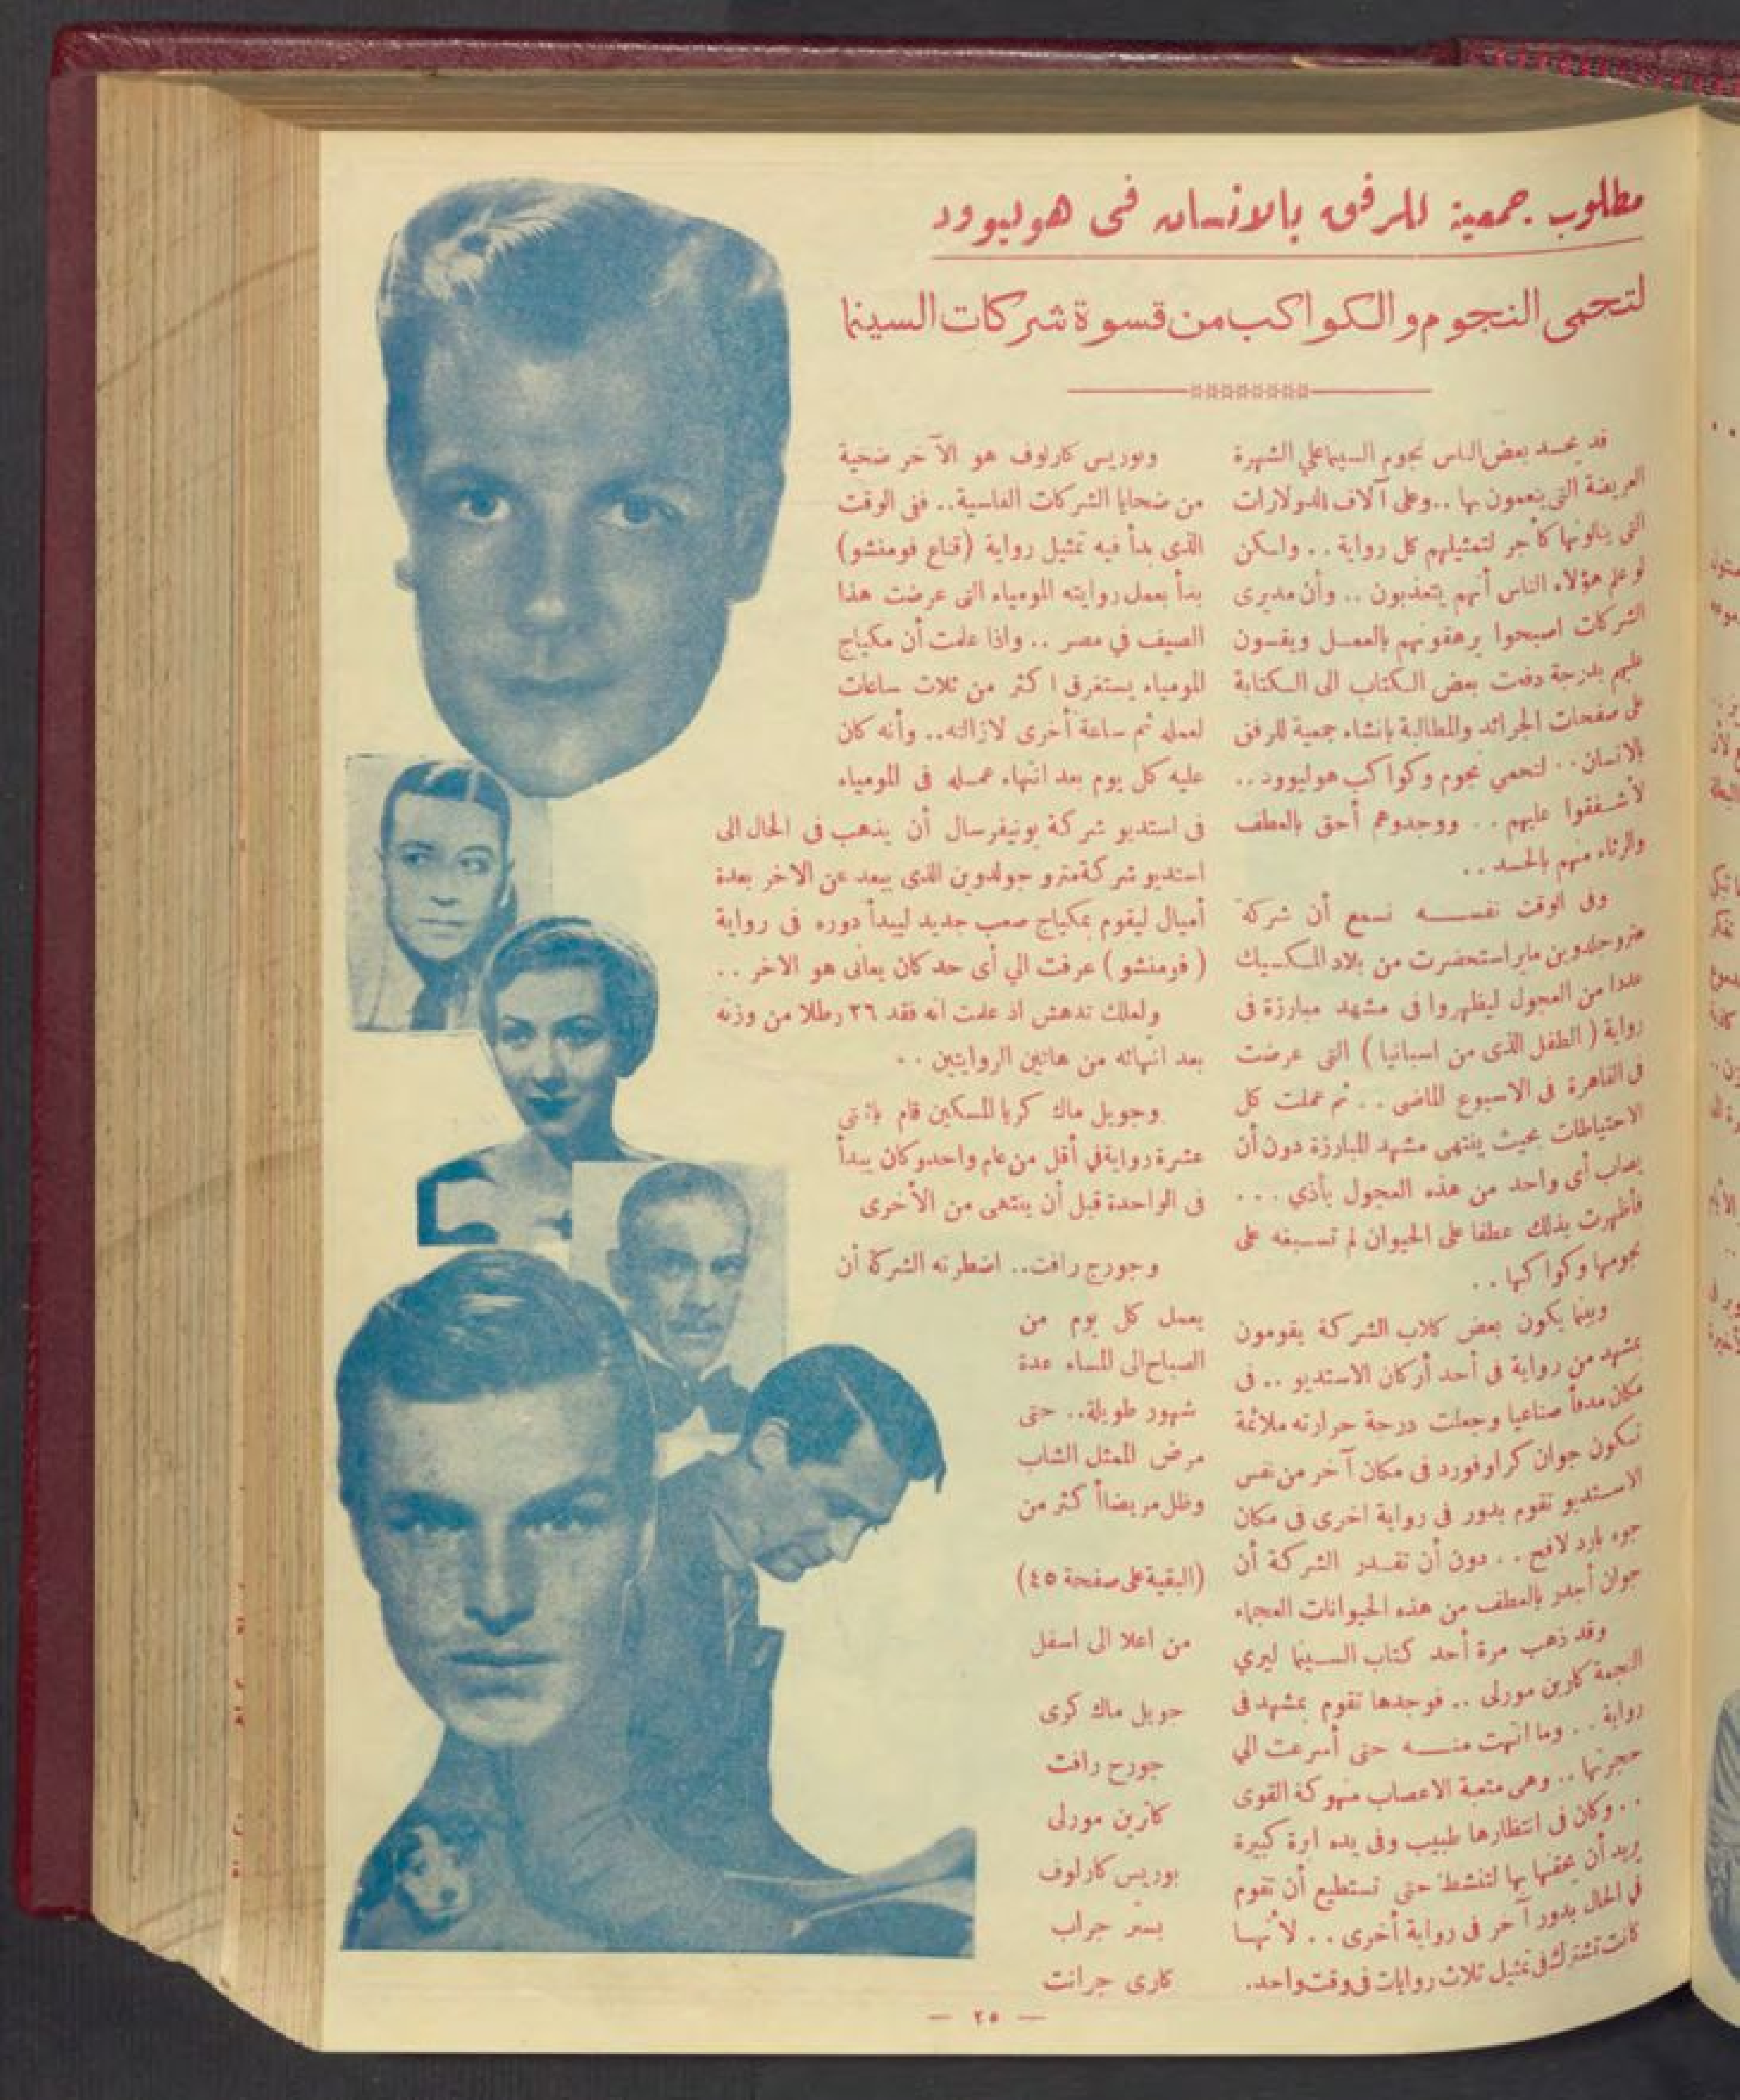 مطلوب جمعية للرفق بالانسان فى هوليوود
لتحمى النجوم والكواكب من قسوة شركات السينما
قد يحسد بعض الناس نجوم السينما علي الشهرة
العريضة التى ينعمون بها .. وعلى آلاف الدولارات
التى ينالونها كأجر لتمثيلهم كل رواية .. ولكن
لو علم هؤلاء الناس أنهم يتعذبون .. وأن مديرى
الشركات اصبحوا يرهقونهم بالعمل ويقسون
عليهم بدرجة دفعت بعض الكتاب الى الكتابة
على صفحات الجرائد والمطالبة بإنشاء جمعية للرفق
بالانسان .. لتحمي نجوم وكواكب هوليوود ..
لأشفقوا عليهم .. ووجدوهم أحق بالعطف
والرثاء منهم بالحسد ..
وفى الوقت نفسه نسمع أن شركة
مترو جلدوين ماير استحضرت من بلاد المكسيك
عددا من العجول ليظهروا فى مشهد مبارزة فى
رواية ( الطفل الذى من اسبانيا ) التى عرضت
فى القاهرة فى الاسبوع الماضى .. ثم عملت كل
الاحتياطات بحيث ينتهى مشهد المبارزة دون أن
يصاب أى واحد من هذه العجول بأذي ...
فأظهرت بذلك عطفا على الحيوان لم تسبغه على
نجومها وكواكبها ..
وبينما يكون بعض كلاب الشركة يقومون
بمشهد من رواية فى أحد أركان الاستديو .. فى
مكان مدفأ صناعيا وجعلت درجة حرارته ملائمة
تكون جوان كراوفورد فى مكان آخر من نفس
الاستديو تقوم بدور فى رواية اخرى فى مكان
جوه بارد لافح .. دون أن تقدر الشركة أن
جوان أجدر بالعطف من هذه الحيوانات العجماء
وقد ذهب مرة أحد كتاب السينما ليري
النجمة كارين مورلى .. فوجدها تقوم بمشهد فى
رواية .. وما انتهت منه حتى أسرعت الي
حجرتها .. وهى متعبة الاعصاب منهوكة القوى
.. وكان فى انتظارها طبيب وفى يده ابرة كبيرة
يريد أن يحقنها بها لتنشط حتى تستطيع أن تقوم
فى الحال بدور آخر فى رواية أخرى .. لأنها
كانت تشترك فى تمثيل ثلاث روايات فى وقت واحد.
وبوريس كارلوف هو الآخر ضحية
من ضحايا الشركات القاسية .. ففى الوقت
الذى بدأ فيه تمثيل رواية (قناع فومنشو)
بدأ بعمل روايته المومياء التى عرضت هذا
الصيف في مصر .. واذا علمت أن مكياج
المومياء يستغرق اكثر من ثلاث ساعات
لعمله ثم ساعة أخرى لازالته .. وأنه كان
عليه كل يوم بعد انتهاء عمله فى المومياء
فى استديو شركة يونيفرسال أن يذهب فى الحال الى
استديو شركة مترو جولدوين الذى يبعد عن الاخر بعدة
أميال ليقوم بمكياج صعب جديد ليبدأ دوره فى رواية
( فومنشو ) عرفت الي أى حد كان يعانى هو الاخر ..
ولعلك تدهش اذ علمت انه فقد ٢٦ رطلا من وزنه
بعد انتهائه من هاتين الروايتين ..
وجويل ماك كريا المسكين قام بإثنتى
عشرة رواية في أقل من عام واحد وكان يبدأ
فى الواحدة قبل أن ينتهى من الأخرى
وجورج رافت .. اضطرته الشركة أن
يعمل كل يوم من
الصباح الى المساء عدة
شهور طويلة .. حتى
مرض الممثل الشاب
وظل مريضا أكثر من
(البقية على صفحة ٤٥)
من اعلا الى اسفل
جويل ماك كرى
جورج رافت
كارين مورلى
بوريس كارلوف
بستر جراب
كارى جرانت
— ٢٥ —